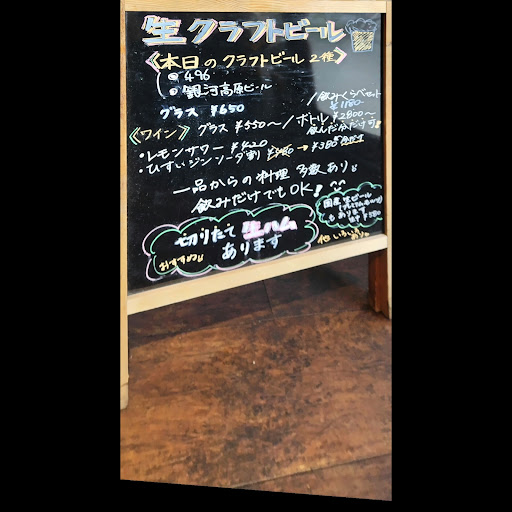 生クラフトビール
《本日のクラフトビール2種》
◎ 496
◎ 銀河高原ビール
グラス ¥650
/飲みくらべセット
¥1180
《ワイン》グラス ¥550〜/ボトル ¥2800〜
飲んだ分だけ可!
・レモンサワー ¥420
・ひすいジンソーダ割 ¥480→¥380
一品からの料理 多数あり
飲みだけでもOK!
国産生ビール
もあります
¥580
切りたて生ハム
あります
おすすめ
他いろいろ
あり